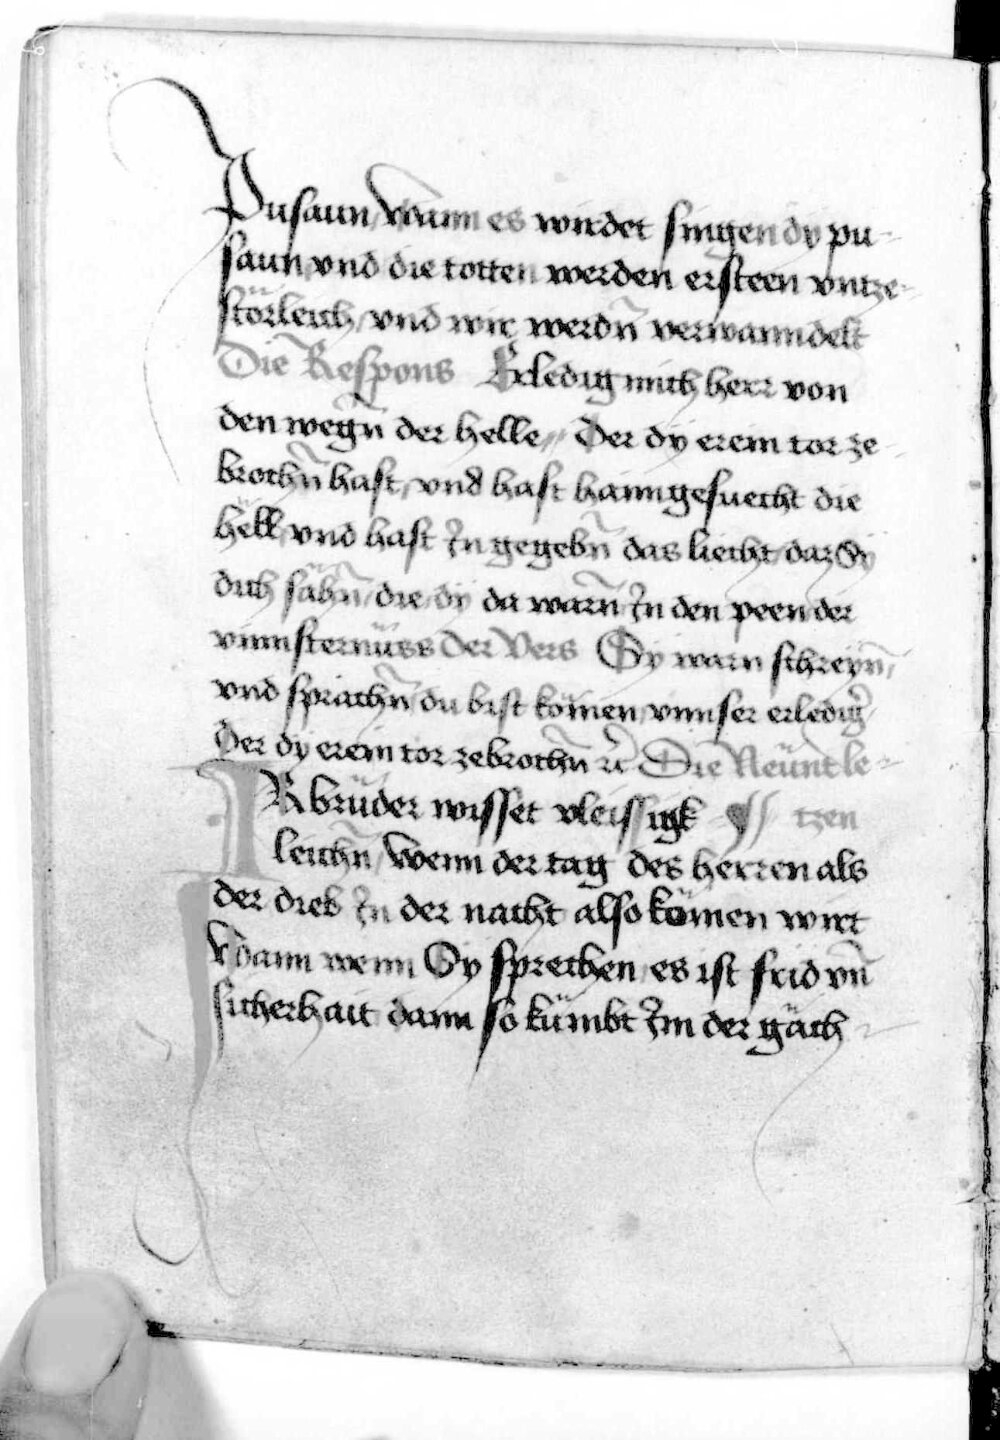 Pusaun, Wann es wirdet singen dÿ pu-
saun, vnd die totten werden ersteen vntze-
störleich, vnd wir werdn̄ verwanndelt
Die Respons Erledig mich herr von
den wegn̄ der helle, Der dÿ erein tor ze-
brochn̄ hast, vnd hast haimgesuecht die
hëll, vnd hast In gegebn̄ das liecht, daz Sÿ
dich sähn̄, die dÿ da warn̄ In den peen der
vinnsternüss Der Vers Sÿ warn schreyn̄,
vnd sprachn̄, du bist kömen, vnnser erledig̉
Der dÿ erein tor zebrochn̄ ꝛc̄ Die Neünt le-
IR brüder wisset vleissigk- tzen
leichn̄, Wenn der tag des herren als
der dieb In der nacht also kömen wirt
Wann wenn Sÿ sprechen, es ist frid vn̄
sicherhait dann so kümbt Im der gäch-